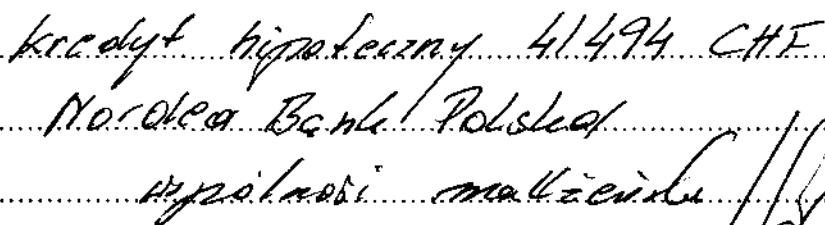 kredyt hipoteczny 41494 CHF
Nordea Bank Polska
wspólność małżeńska